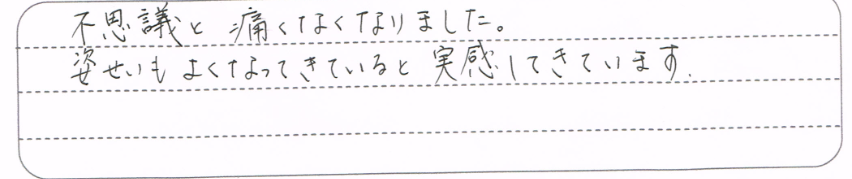 不思議と痛くなくなりました。
姿せいもよくなってきていると実感してきています.